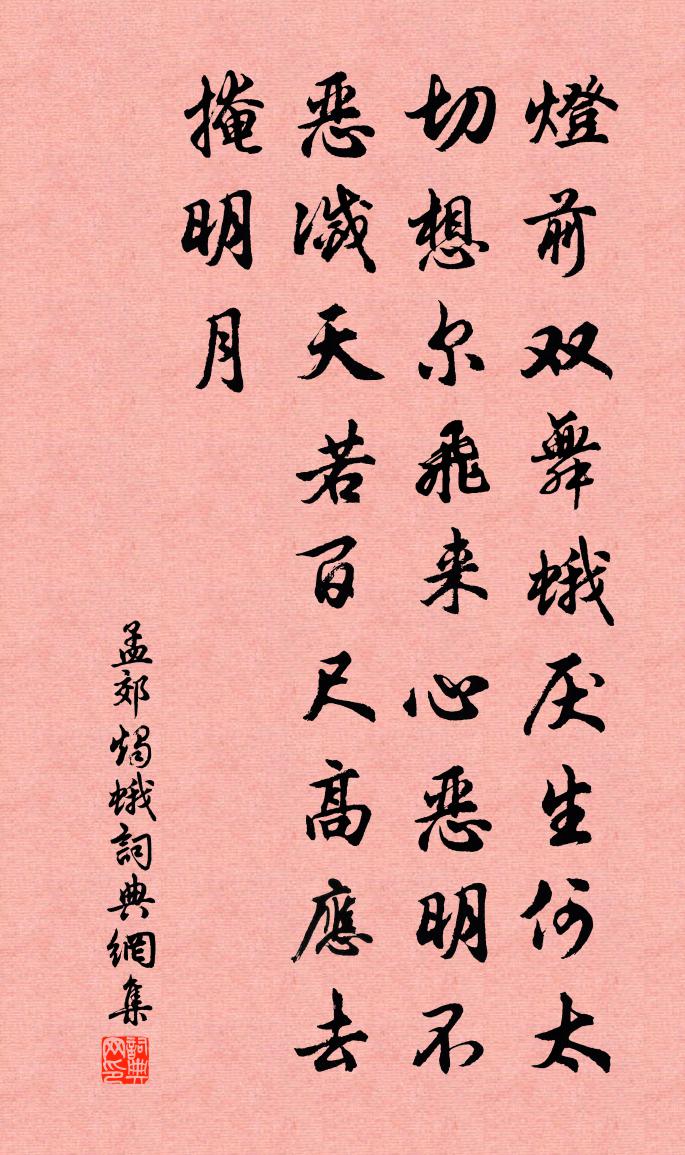 燈前双舞蛾厌生何太
切想尔飛来心恶明不
恶滅天若百尺高應去
掩明月
孟郊燭蛾詞典網集
詞典网印